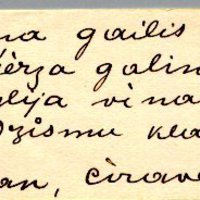 na gailis
vērza galin
lija vina
Dzismu kla
an, cīrav